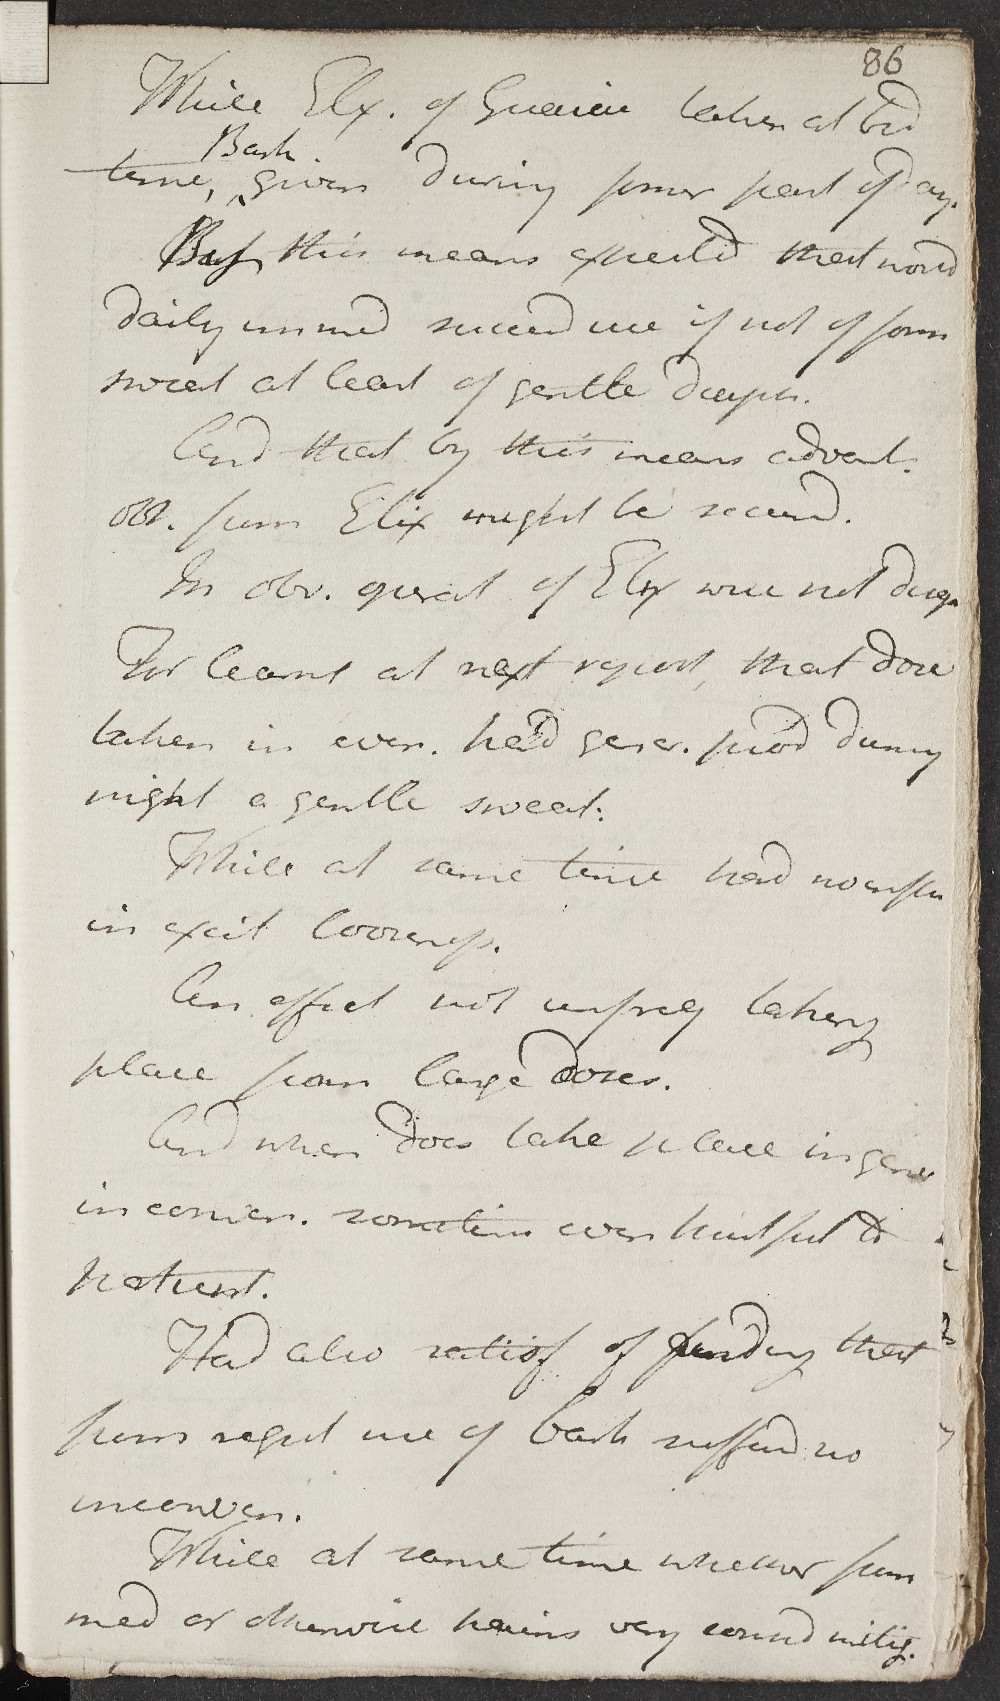 86
While Elix. of Guaiac taken at bed
time, Bark given during former part of day.
By this means expected that would
daily immed succeed use if not of some
sweat at least of gentle diaph.
And that by this means advant.
obt. from Elix might be secured.
In obv. operat of Elix were not disap
For learnt at next report, that dose
taken in even. had gener. prod during
night a gentle sweat.
While at same time had no influ
in excit looseness.
An effect not unfreq taking
place from large doses.
And when does take place in gener
inconven. sometim even hurtful to
patient.
Had also satisf of finding that
from regul use of bark suffered no
inconven.
While at same time whether from
med or otherwise pains very consid mitig.